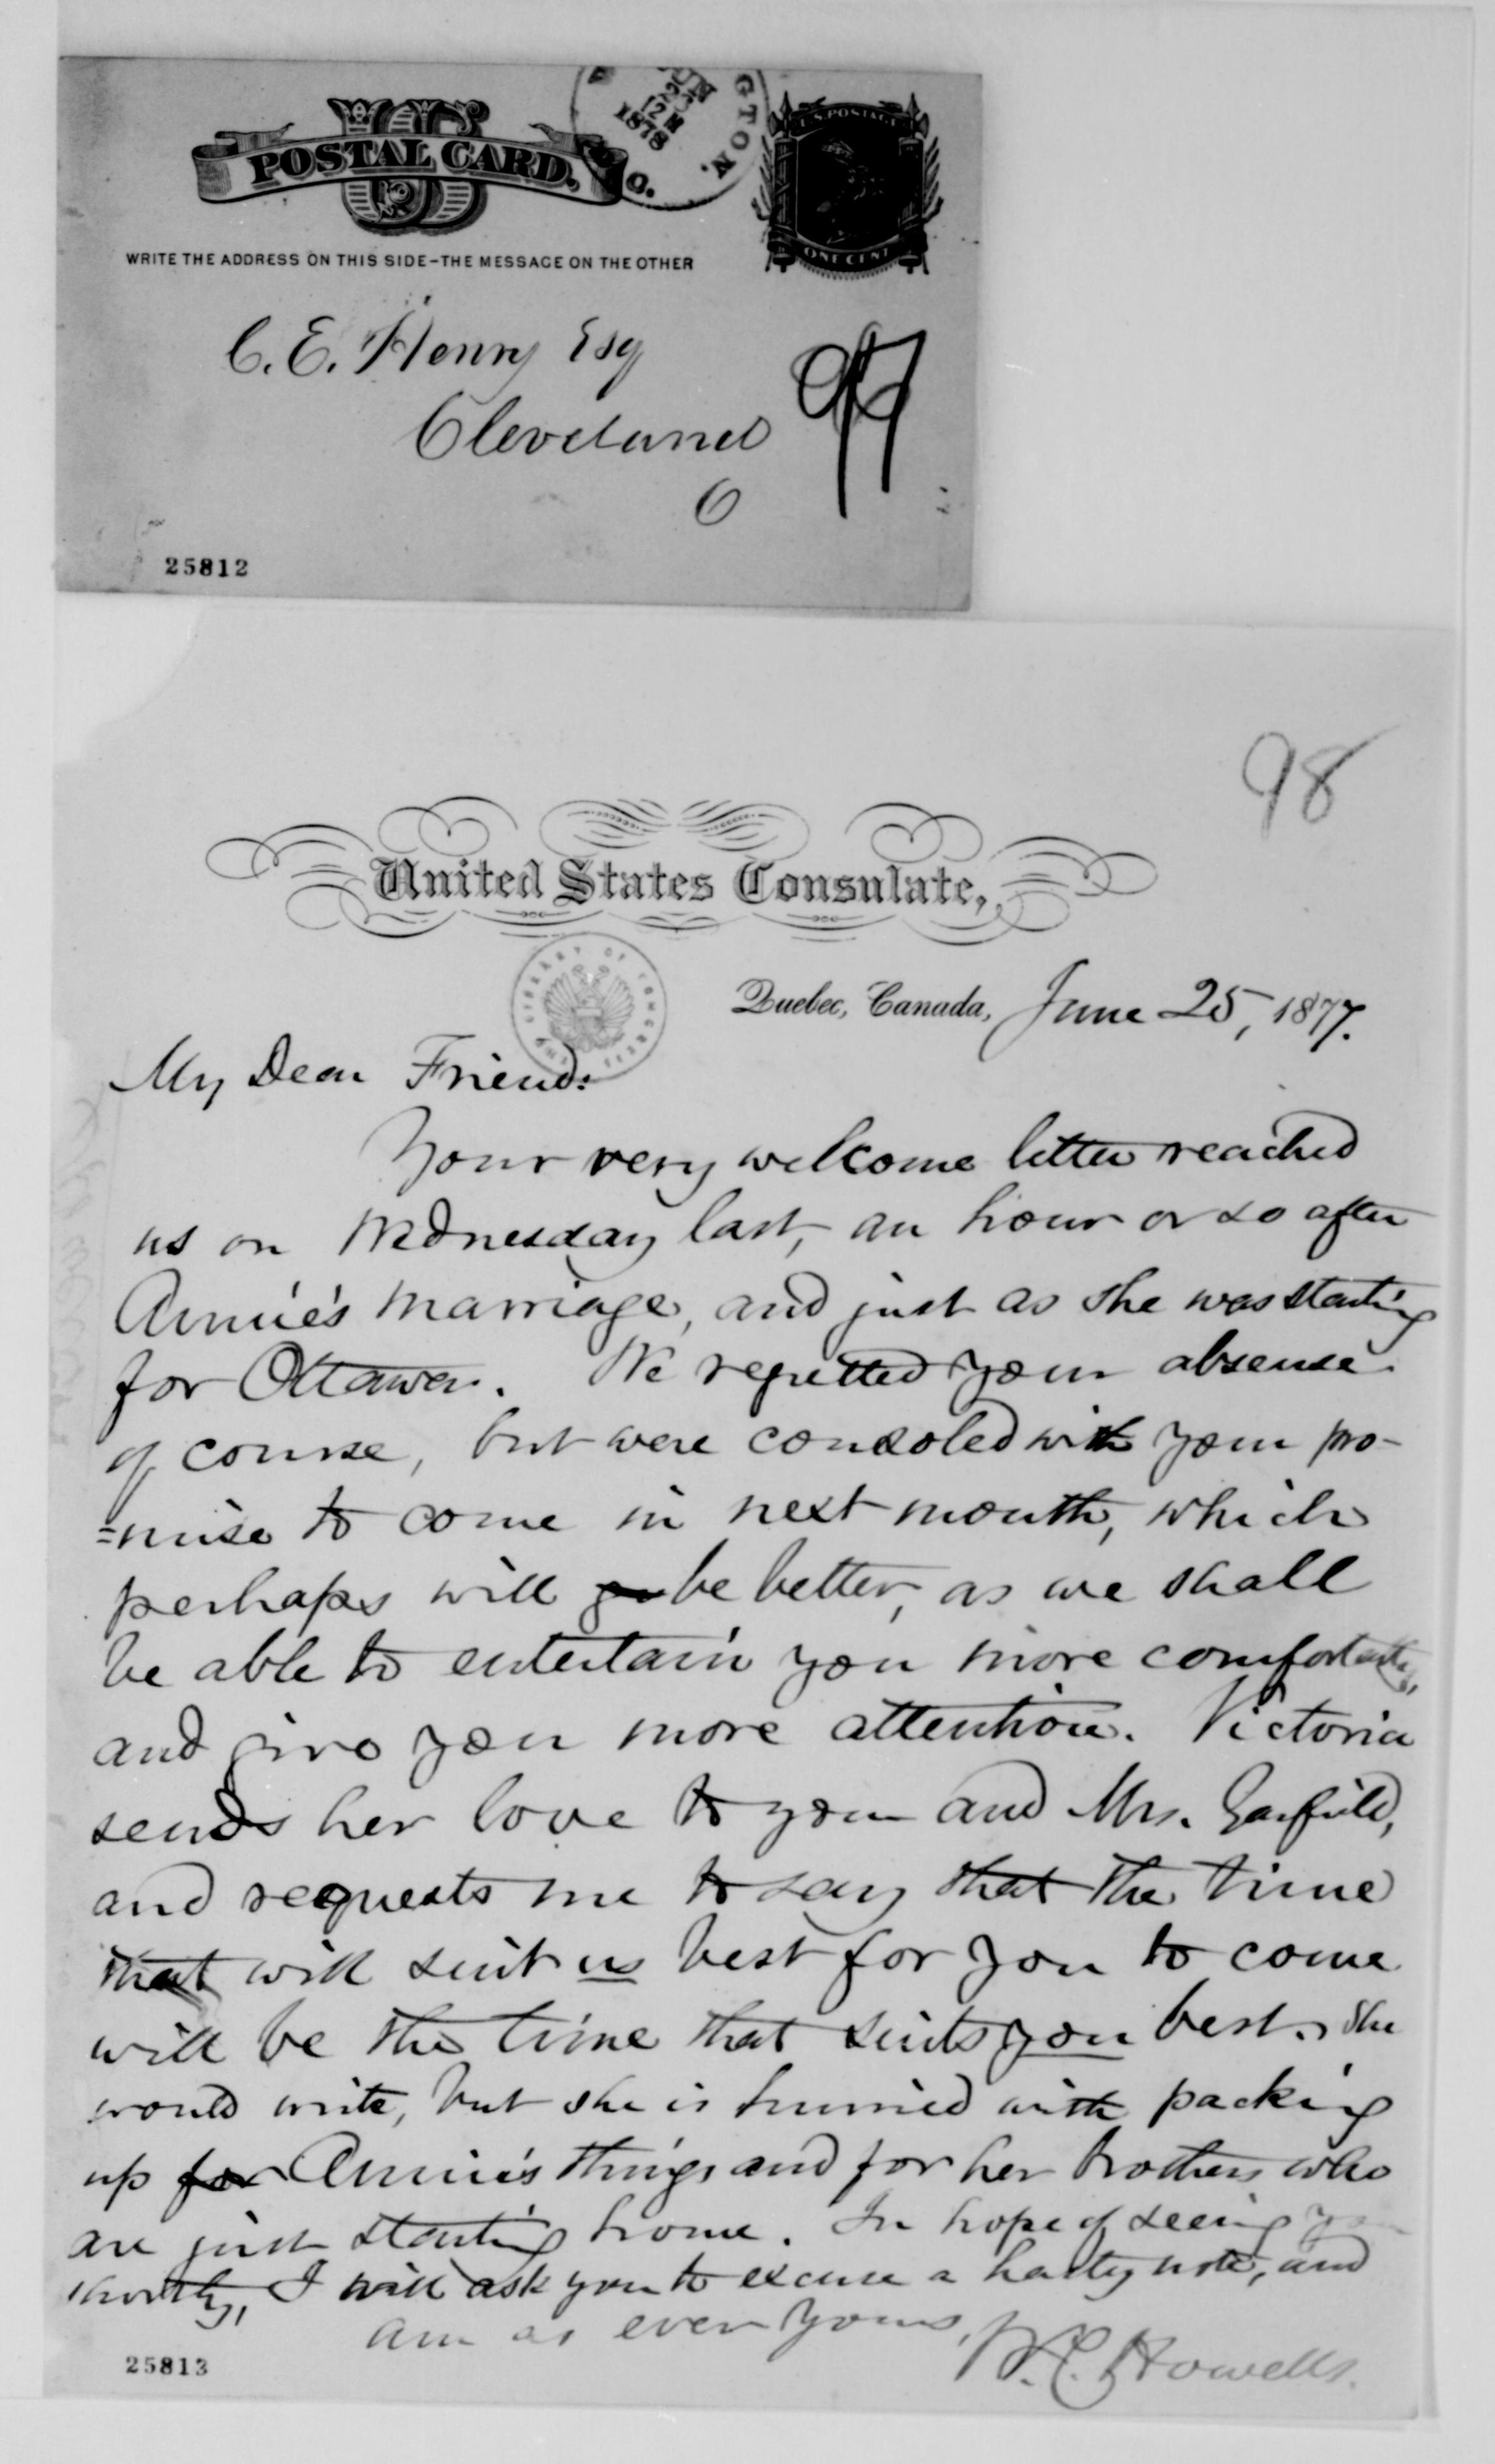 U.S. POSTAGE
POSTAL CARD.
GTON.
JUN
12 M
1878
C.
ONE CENT
WRITE THE ADDRESS ON THIS SIDE-THE MESSAGE ON THE OTHER
C. E. Henry Esq
Cleveland
O
97
25812
98
United States Consulate,
LIBRARY OF CONGRESS
Quebec, Canada, June 25, 1877.
My Dear Friend:
Your very welcome letter reached
us on Wednesday last, an hour or so after
Annie's marriage, and just as she was starting
for Ottawa. We regretted your absence
of course, but were consoled with your pro-
=mise to come in next month, which
perhaps will be better, as we shall
be able to entertain you more comfortably,
and give you more attention. Victoria
sends her love to you and Mrs. Garfield,
and requests me to say that the time
that will suit us best for you to come
will be the time that suits you best. She
would write, but she is hurried with packing
up for Annie's things and for her brothers who
are just starting home. In hope of seeing you
shortly, I will ask you to excuse a hasty note, and
am as ever yours,
W. C. Howells.
25813